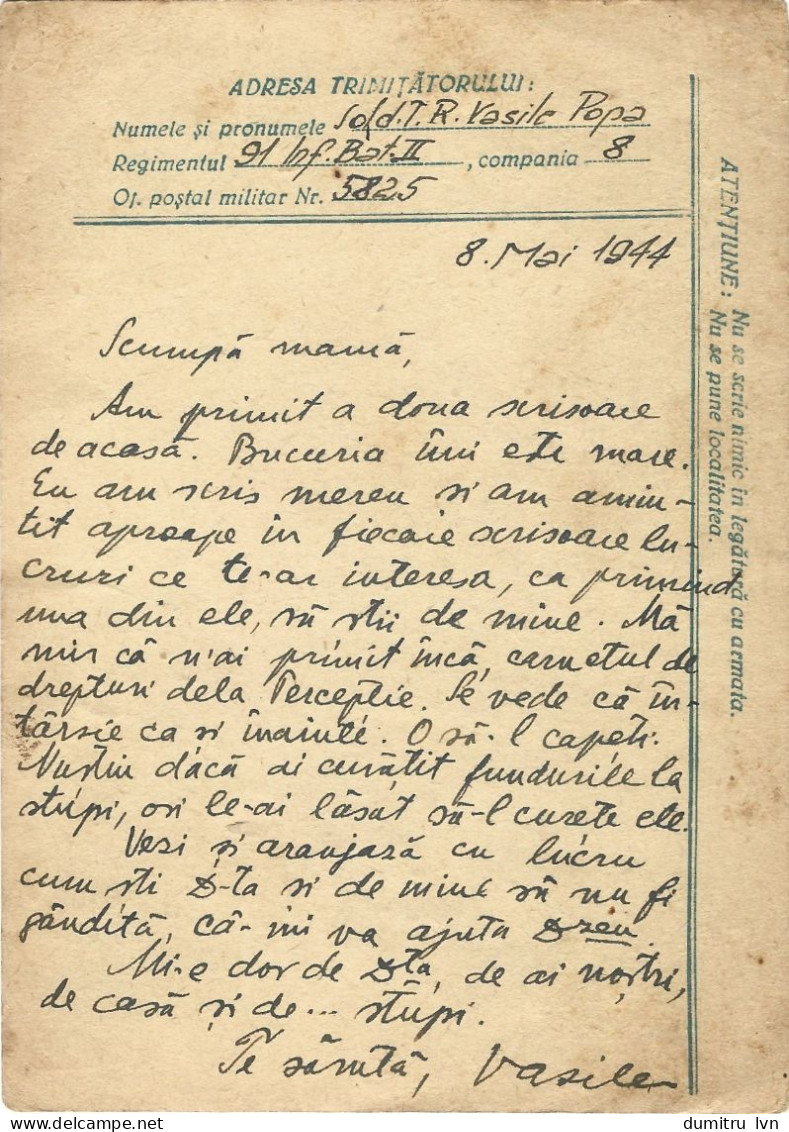 ADRESA TRIMIȚĂTORULUI:
Numele și pronumele Sold. T. R. Vasile Popa
Regimentul 91 Inf. Bat. II, compania 8
Of. poștal militar Nr. 5825
ATENȚIUNE: Nu se scrie nimic în legătură cu armata.
Nu se pune localitatea.
8. Mai 1944
Scumpă mamă,
Am primit a doua scrisoare
de acasă. Bucuria îmi este mare.
Eu am scris mereu si am amin-
tit aproape în fiecare scrisoare lu-
cruri ce te-ar interesa, ca primind
una din ele, să stii de mine. Mă
mir că n'ai primit încă, carnetul de
drepturi dela Perceptie. Se vede că în-
târsie ca si înainte. O să-l capeți.
Nuștiu dacă ai curătit fundurile la
stupi, ori le-ai lăsat să-l curețe ele.
Vezi și aranjază cu lucru
cum sti D-ta si de mine să nu fi
gândită, că-mi va ajuta Dzeu.
Mi-e dor de D-ta, de ai noștri,
de casă și de... stupi.
Te sărută, Vasile
dumitru lvn